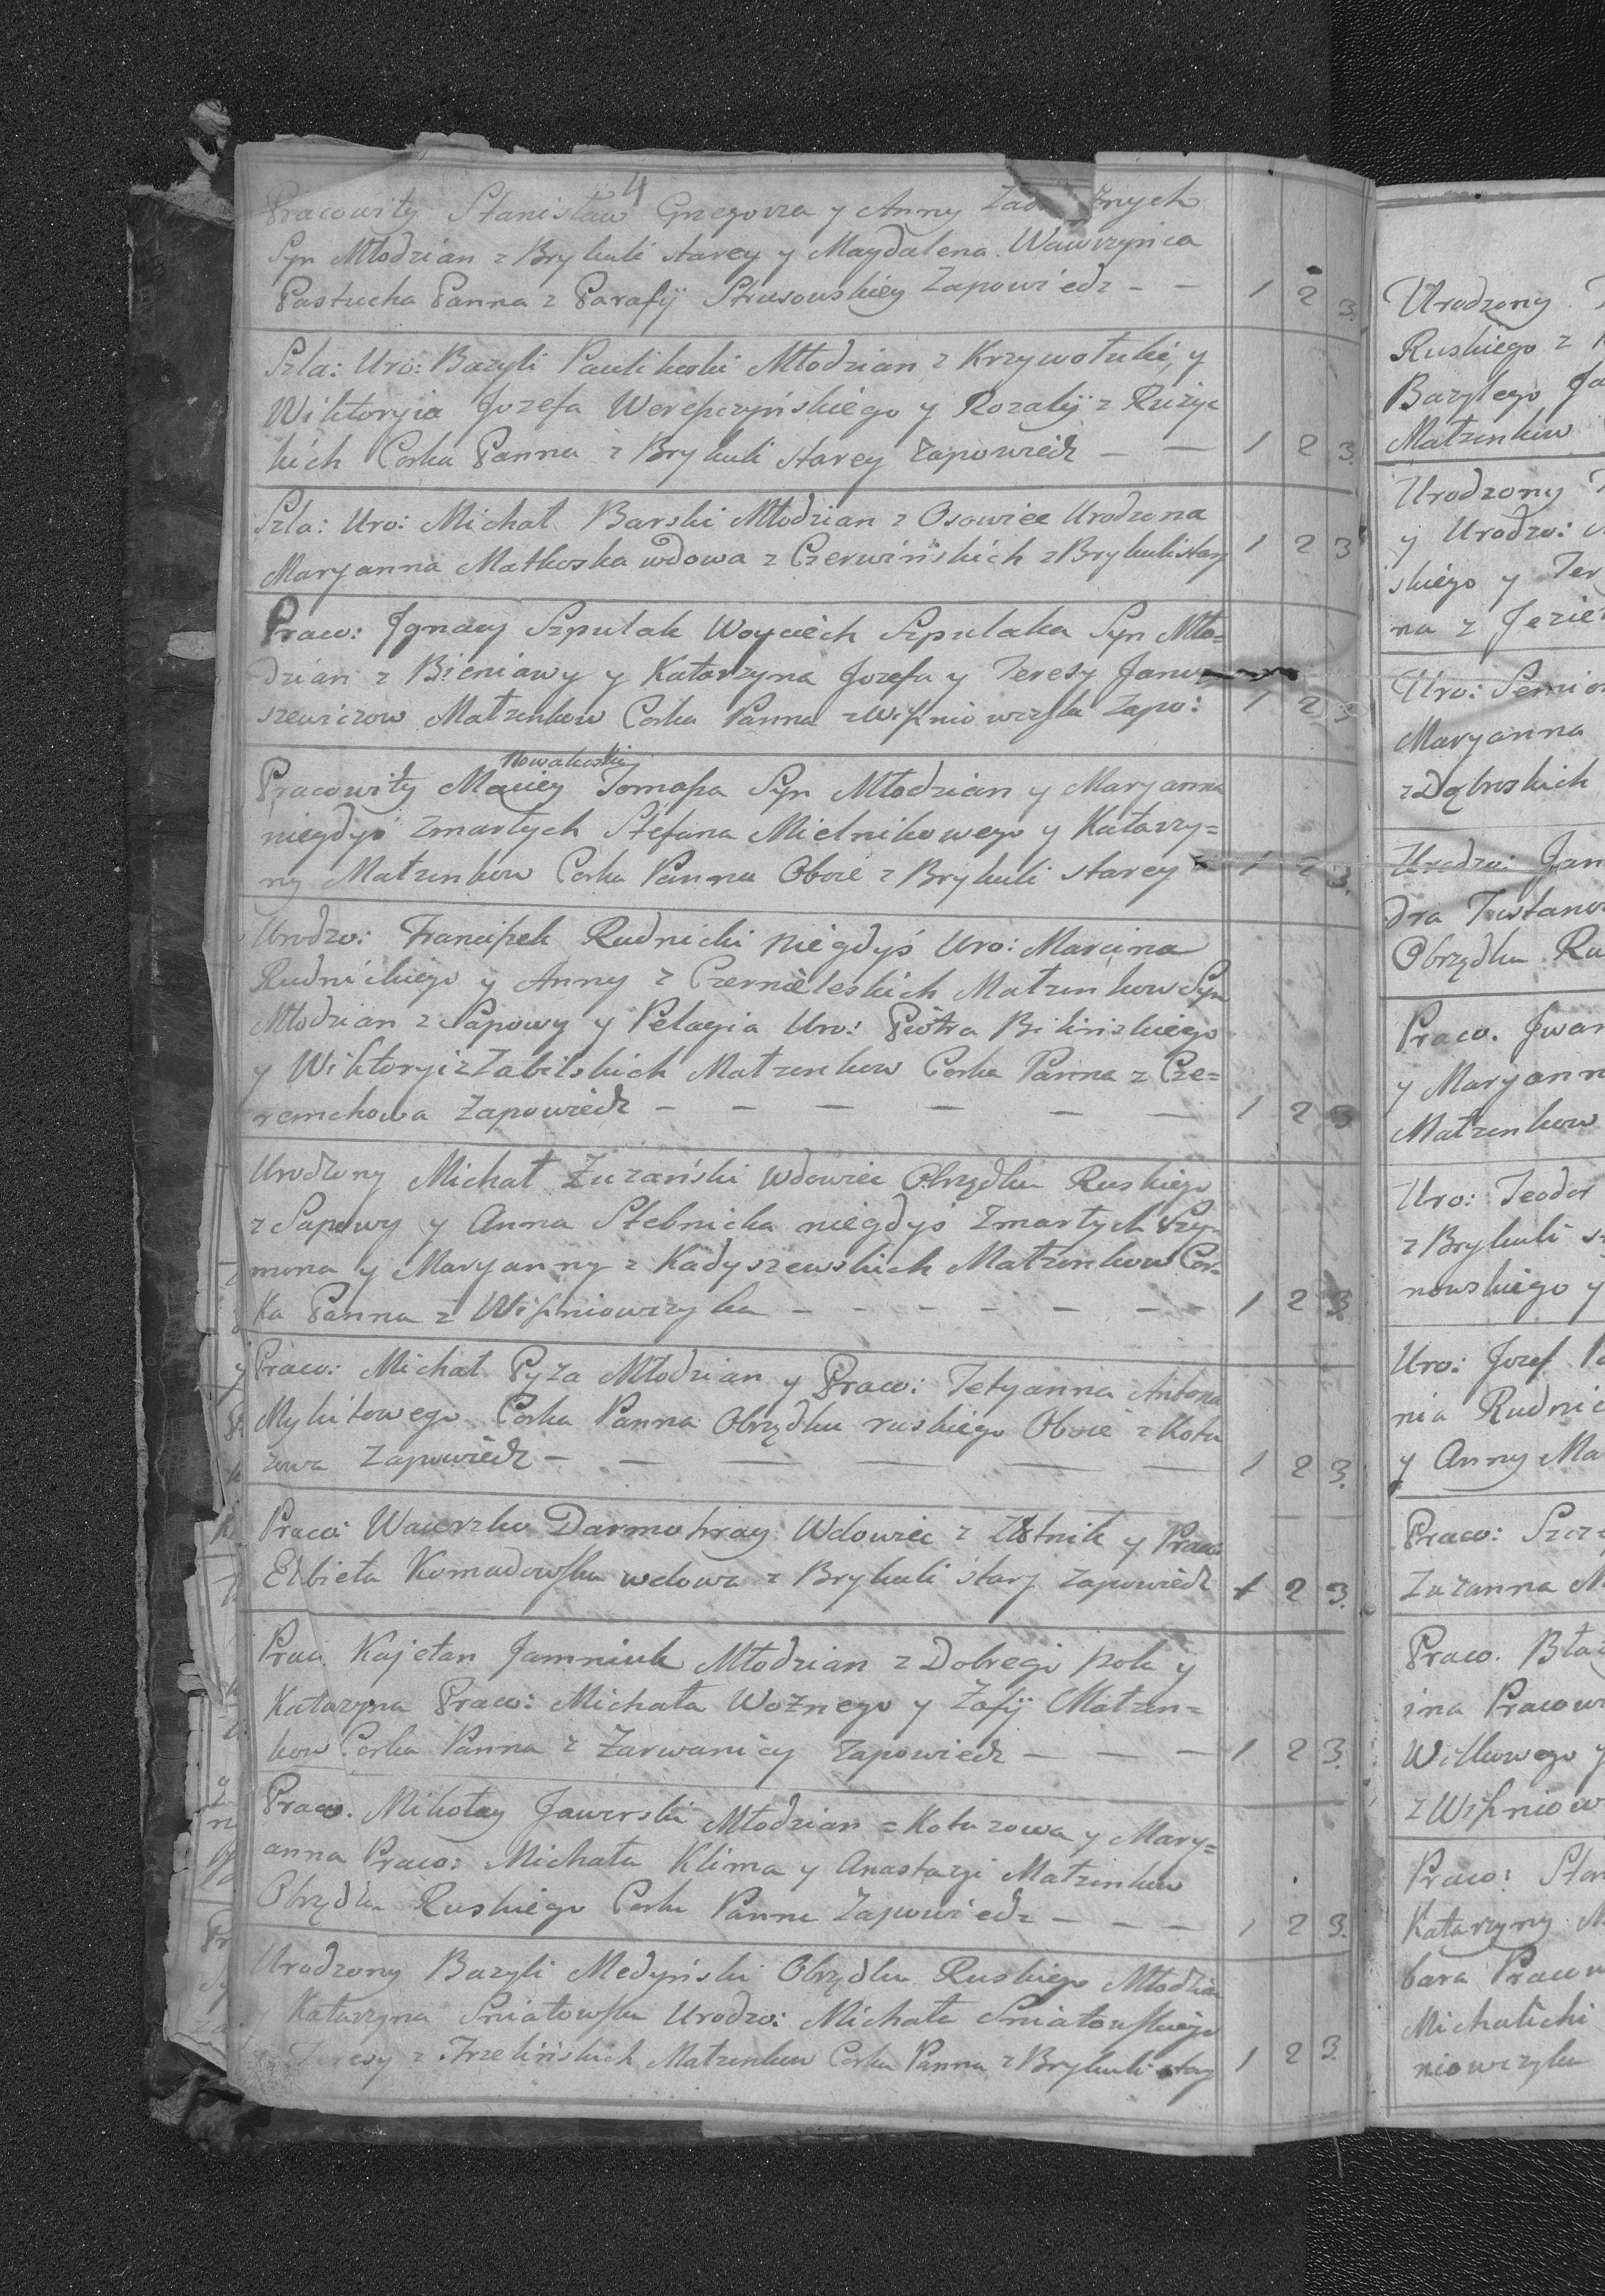 4
Pracowity Stanisław Grzegorza y Anny
Syn Młodzian z Brykuli starey y Magdalena Wawrzyńca
Pastucha Panna z Parafij Strusowskiey Zapowiedz - - 1 2 3.
Szla: Uro: Bazyli Paulikoski Młodzian z Krzywołuki, y
Wiktoryia Jozefa Werepczyńskiego y Rozalij z Rużyc
kich Corka Panna z Brykuli starey Zapowiedz - - 1 2 3.
Szla: Uro: Michał Barski Młodzian z Osowiec Urodzona
Maryanna Matkoska wdowa z Czerwińskich z Brykuli stary 1 2 3
Praw: Jgnacy Szpulak Woyciech Szpulaka Syn Mło=
dzian z Bieniawy y Katarzyna Jozefa y Teresy Janu
szewiczow Małzenkow Corka Panna z Wiśniowczyka Zapo: 1 2 3
Nowakoski
Pracowity Maciey Tomasza Syn Młodzian y Maryanna
niegdyś Zmarłych Stefana Mielnikowego y Katarzy=
ny Małzenkow Corka Panna Oboie z Brykuli starey - 1 2 3.
Urodzo: Franciszek Rudnicki niegdyś Uro: Marcina
Rudnickiego y Anny z Czernieleskich Małzenkow Syn
Młodzian z Sapowy y Pelagia Uro: Piotra Bilińskiego
y Wiktoryi z Zabilskich Małzenkow Corka Panna z Cze=
remchowa Zapowiedz - - - - - - 1 2 3
Urodzony Michał Zuzański Wdowiec Obrządku Ruskiego
z Sapowy y Anna Stebnicka niegdyś Zmarłych Szy=
mona y Maryanny z Kadyszewskich Małzenkow Cor=
ka Panna z Wiśniowczyka - - - - - - - 1 2 3.
Praco: Michał Pyza Młodzian y Praco: Tetyanna Antona
Mykitowego Corka Panna Obrządku ruskiego Oboie z Kotu
zowa Zapowiedz - - - - - 1 2 3.
Praco: Wawrzko Darmohray Wdowiec z Złotnik y Praco:
Elbieta Komadowska wdowa z Brykuli stary Zapowiedz 1 2 3.
Prac: Kajetan Jamniuk Młodzian z Dobrego pola y
Katarzyna Praco: Michała Woźnego y Zofij Małzen=
kow Corka Panna z Zarwanicy Zapowiedz - - - 1 2 3.
Praco. Mikołay Jaworski Młodzian z Kotuzowa y Mary=
anna Praco: Michała Klima y Anastazyi Małzenkow
Obrządku Ruskiego Corka Panna Zapowiedz - - - 1 2 3.
Urodzony Bazyli Medyński Obrządku Ruskiego Młodzian
y Katarzyna Śniatowska Urodzo: Michała Sniatowskiego
Teresy z Trzelińskich Małzenkow Corka Panna z Brykuli stary 1 2 3.
Urodzony
Ruskiego z
Bazylego
Małzenkow
Urodzony
y Urodzo:
skiego y Ter
na z Jezier
Uro:
Maryanna
z Dąbroskich
Urodzo: Jan
dra
Obrządku Ru
Praco. Jwan
y Maryann
Małzenkow
Uro: Teodor
z Brykuli
nowskiego y
Uro: Jozef
nia Rudnic
y Anny Ma
Praco:
Zuzanna
Praco. Błaż
Pracow
Witkowego y
z Wiśniow
Praco: Stan
Katarzyny
bara Pracow
Michalicki
niowczyku